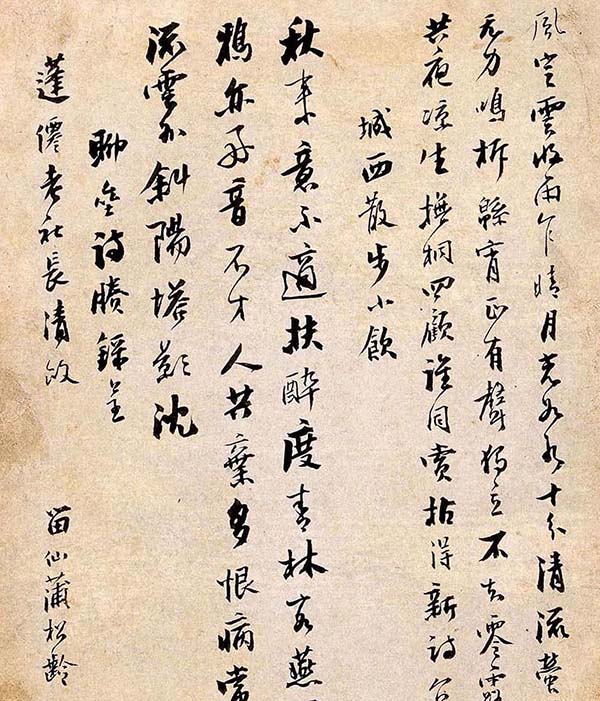 風定雲收雨乍晴月光如水十分清流螢
無力鳴柝縣宵正有聲獨立不知零露
共夜涼生撫桐四顧誰同賞拈得新詩
城西散步小飲
秋來意不適扶醉度青林客燕
鴉亦好音不才人共棄多恨病常
流雲外斜陽塔影沈
聊齋詩謄錄呈
蓬僊老社長清政
留仙蒲松齡